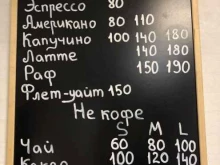 Эспрессо 80
Американо 80 110
Капучино 100 140 180
Латте 140 180
Раф 150 190
Флет-уайт 150
Не кофе
S M L
Чай 60 80 100
Какао 100 120 140